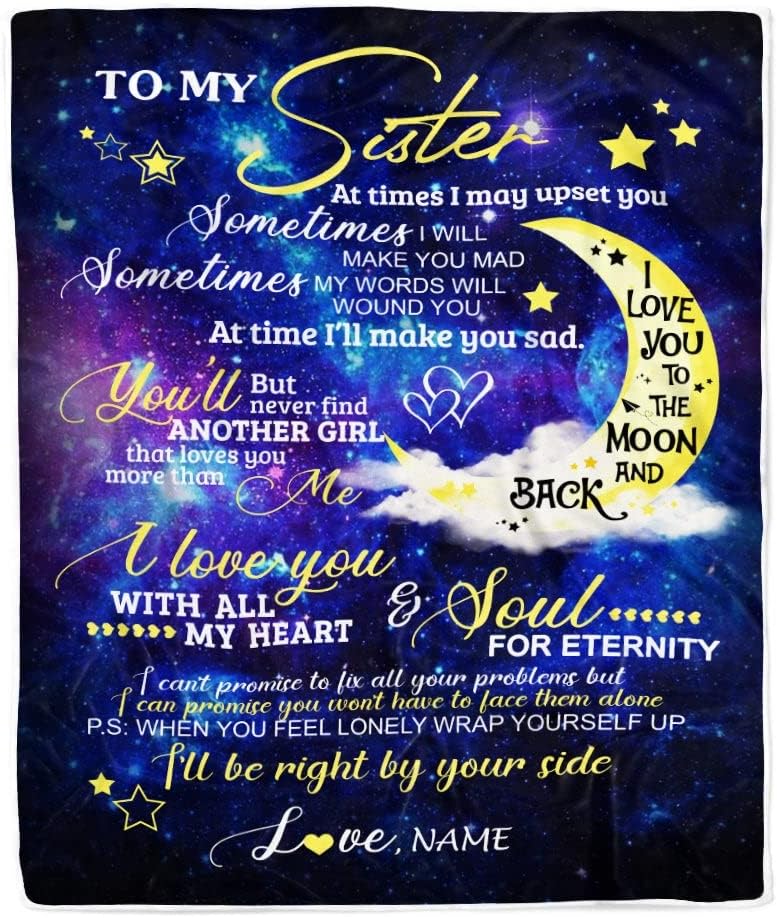 TO MY Sister
At times I may upset you
Sometimes I WILL
MAKE YOU MAD
Sometimes MY WORDS WILL
WOUND YOU
At time I'll make you sad.
You'll But
never find
ANOTHER GIRL
that loves you
more than Me
I LOVE YOU TO THE MOON AND BACK
I love you
WITH ALL
MY HEART
& Soul
FOR ETERNITY
I can't promise to fix all your problems but
I can promise you won't have to face them alone
P.S: WHEN YOU FEEL LONELY WRAP YOURSELF UP
I'll be right by your side
Love, NAME